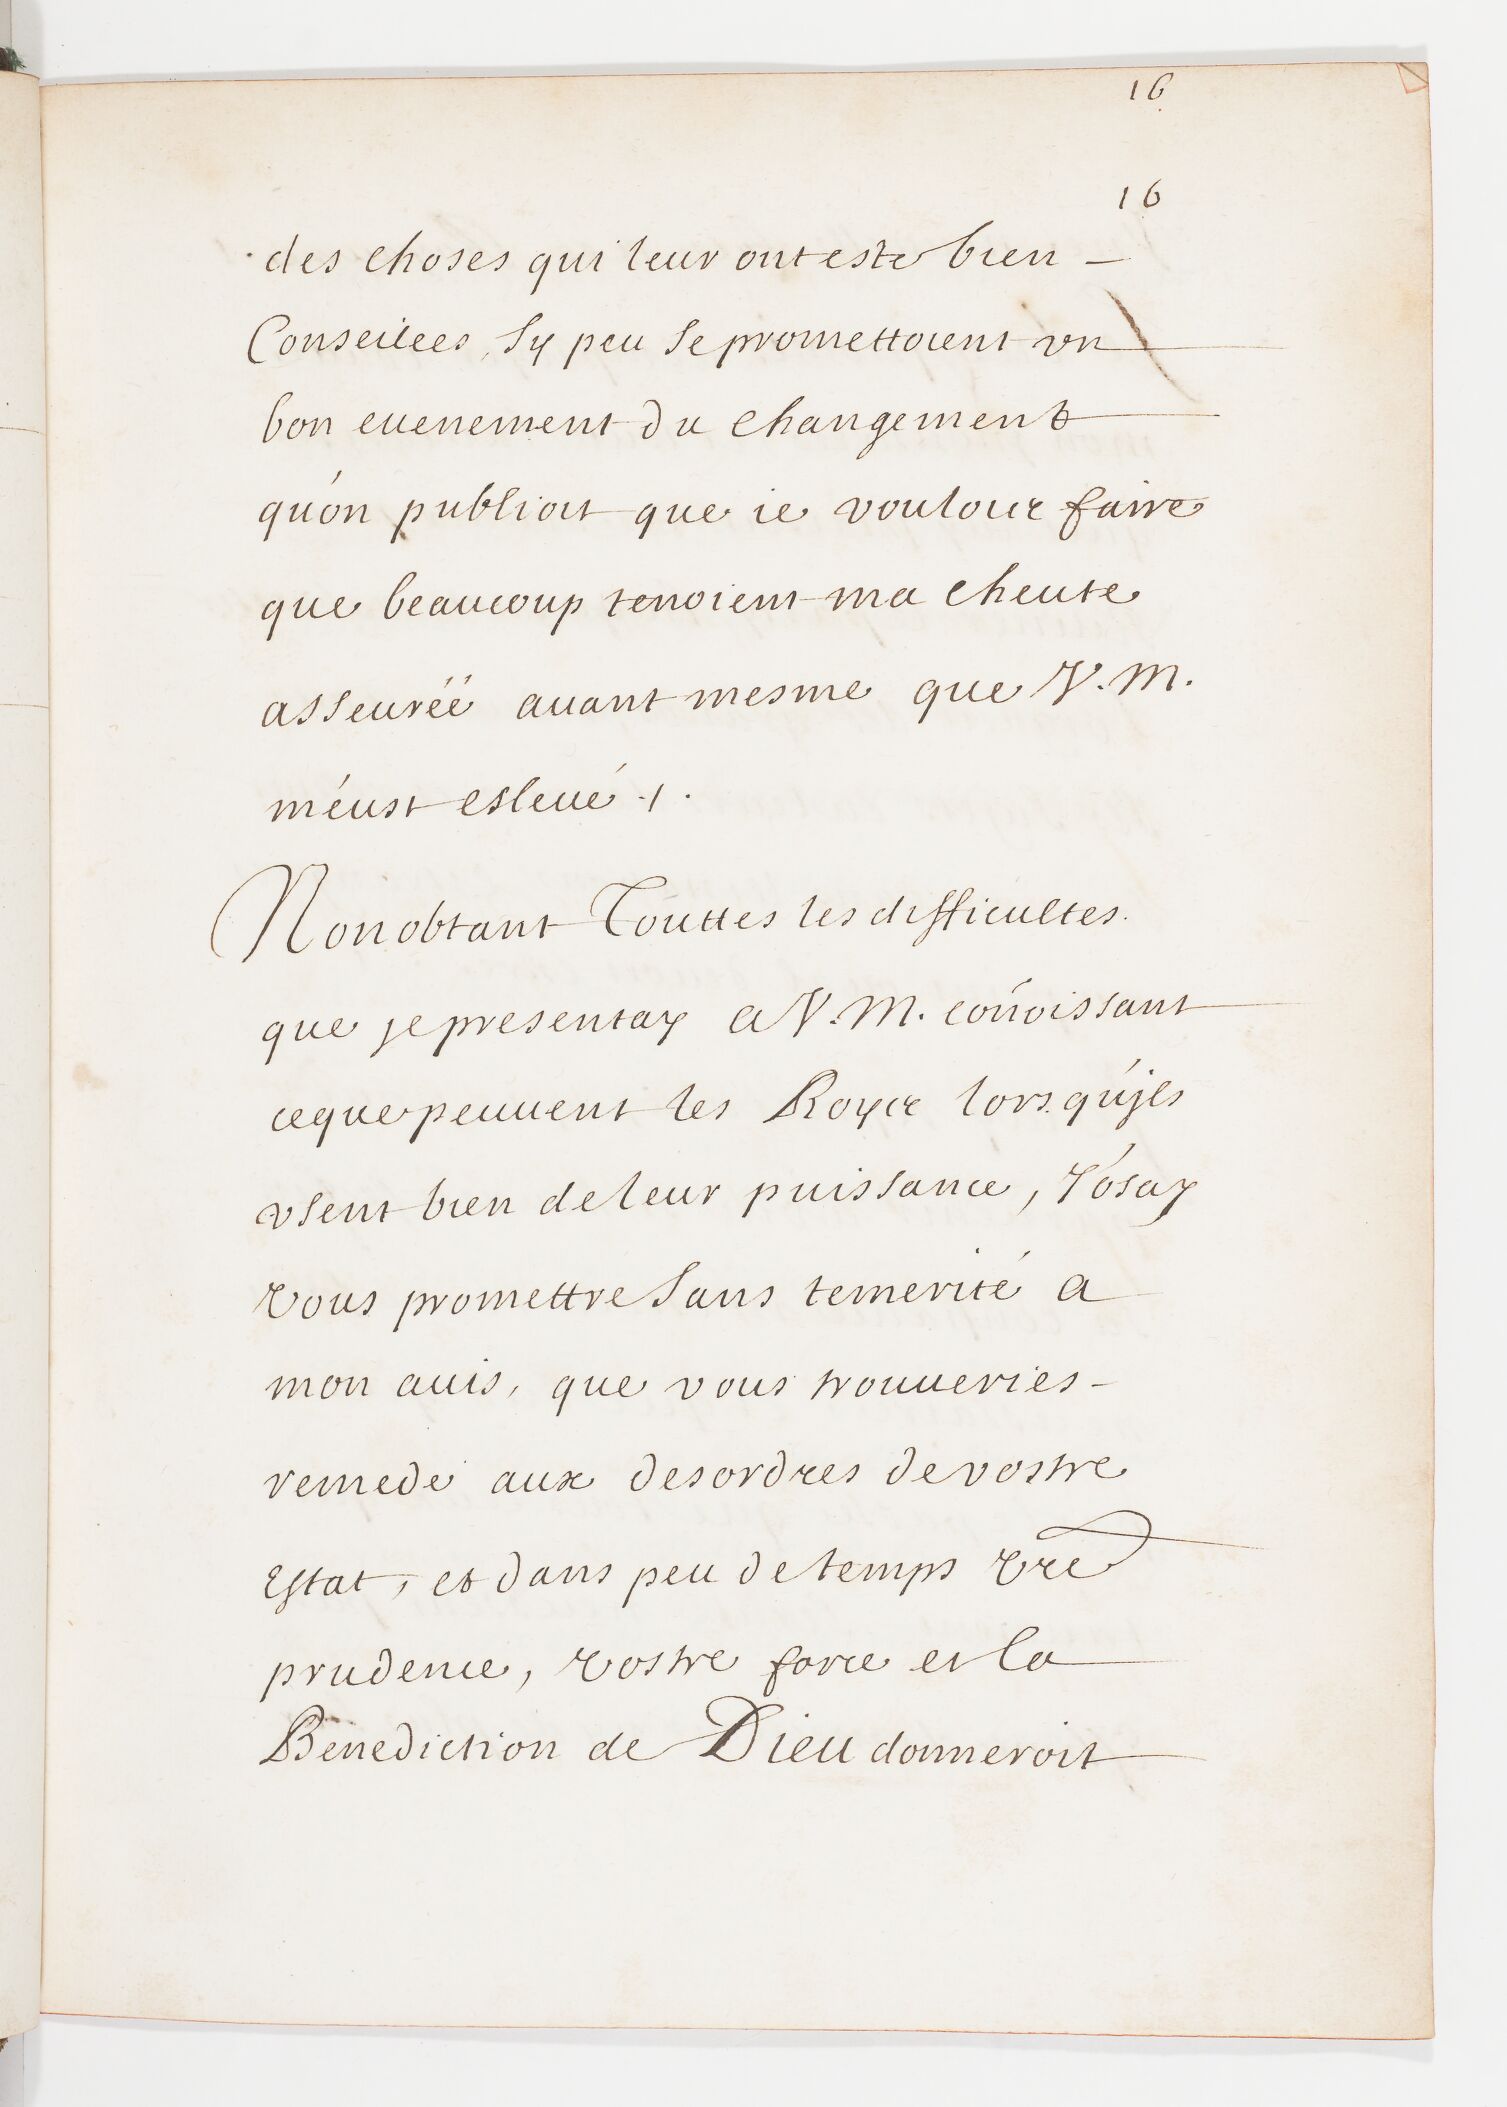 16
16
des choses qui leur ont este bien –
Conseilees, sy peu se promettoient vn
bon euenement du changement
qu'on publioit que ie voulois faire
que beaucoup tenoient ma cheute
asseuréé auant mesme que V. M.
m'eust esleué ./.
Nonobtant Touttes les difficultes.
que je presentay a V. M. coñoissant
ce que peuuent les Roys lors qu'jls
vsent bien de leur puissance, J'osay
vous promettre sans temerité a
mon auis, que vous trouueries –
remede aux desordres de vostre
Estat, et dans peu de temps vre
prudence, vostre force et la
Benediction de Dieu donneroit